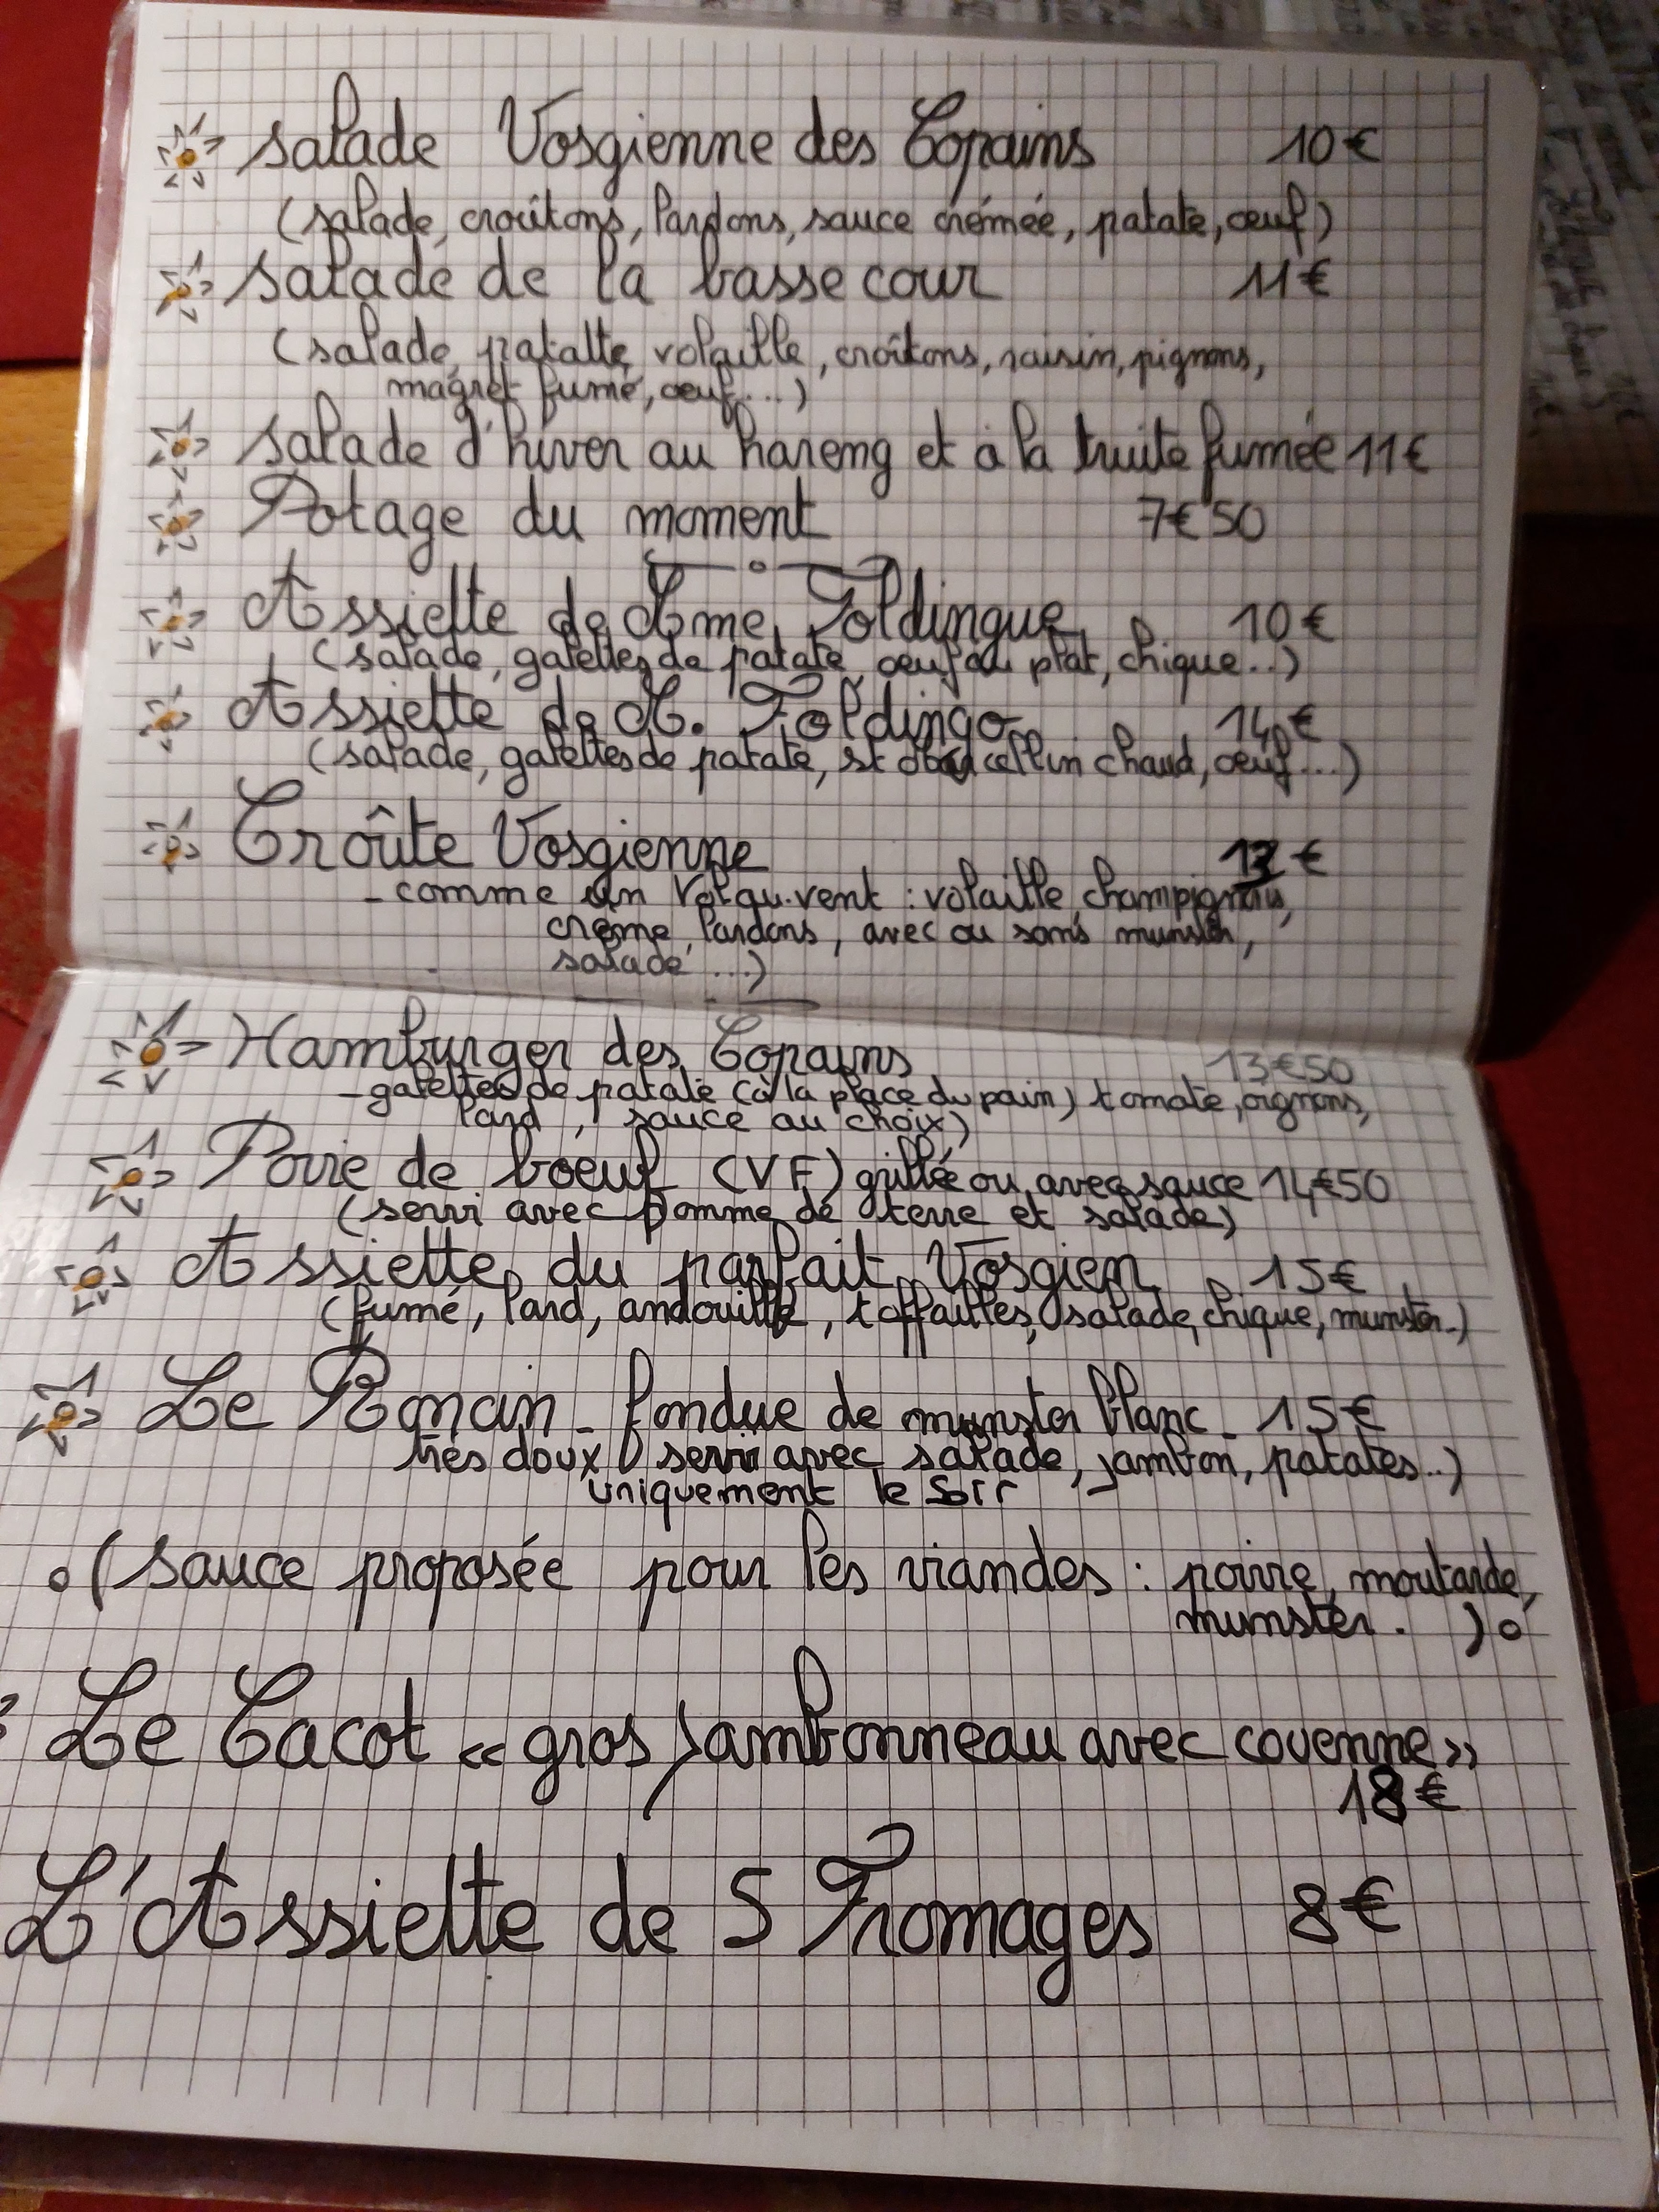 Salade Vosgienne des Copains 10€
(salade, croûtons, lardons, sauce crémée, patate, oeuf)
Salade de la basse cour 11€
(salade, patatte, volaille, croûtons, raisin, pignons,
magret fumé, oeuf...)
Salade d'hiver au hareng et à la truite fumée 11€
Potage du moment 7€50
Assiette de Mme Foldingue 10€
(salade, galettes de patate, oeuf au plat, chique...)
Assiette de M. Foldingo 14€
(salade, galettes de patate, st Marcellin chaud, oeuf...)
Croûte Vosgienne €
- comme un Vol au vent : volaille, champignons,
crème, lardons, avec ou sans munster,
salade ...)
Hamburger des Copains 13€50
- galettes de patate (à la place du pain) tomate, oignons,
lard, sauce au choix)
Poire de boeuf (VF) grillée ou avec sauce 14€50
(servi avec pomme de terre et salade)
Assiette du parfait Vosgien 15€
(fumé, lard, andouille, toffailles, salade, chique, munster..)
Le Ronan - fondue de munster blanc - 15€
très doux servi avec salade, jambon, patates..)
uniquement le soir
(sauce proposée pour les viandes : poivre, moutarde,
munster. )
Le Cacot « gros jambonneau avec couenne »
18€
L'Assiette de 5 Fromages 8€